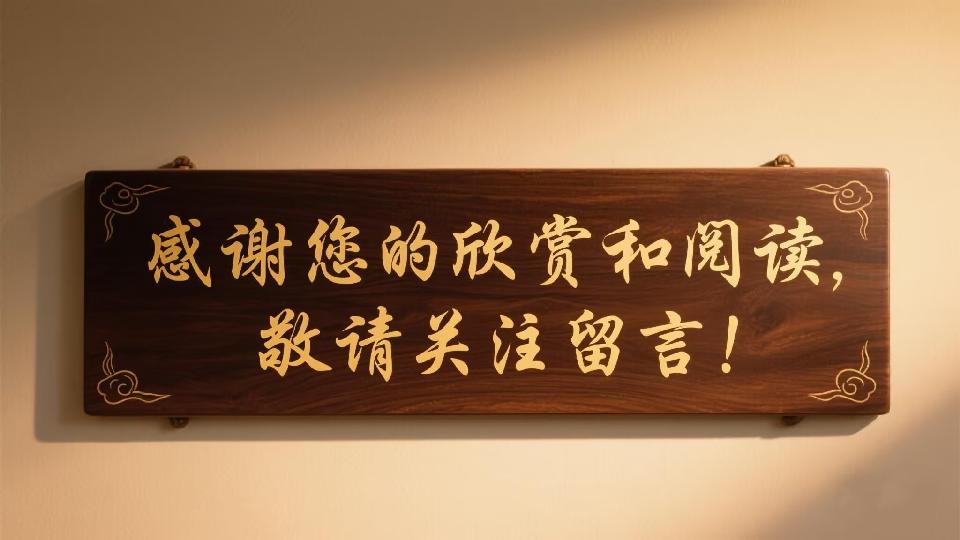 感谢您的欣赏和阅读,
敬请关注留言!